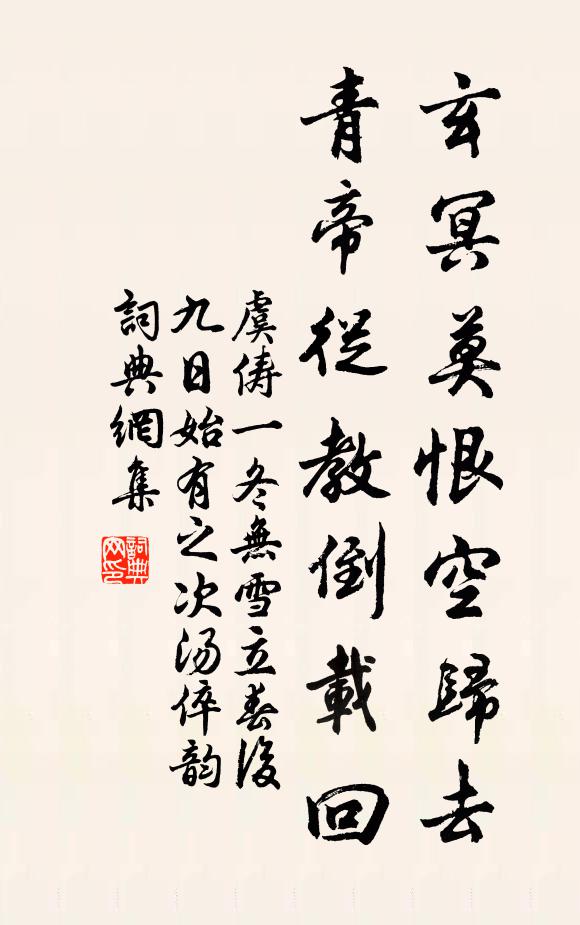 玄冥莫恨空歸去
青帝從教倒載回
虞儔一冬無雪立春後
九日始有之次湯倅韵
詞典網集
詞典网印